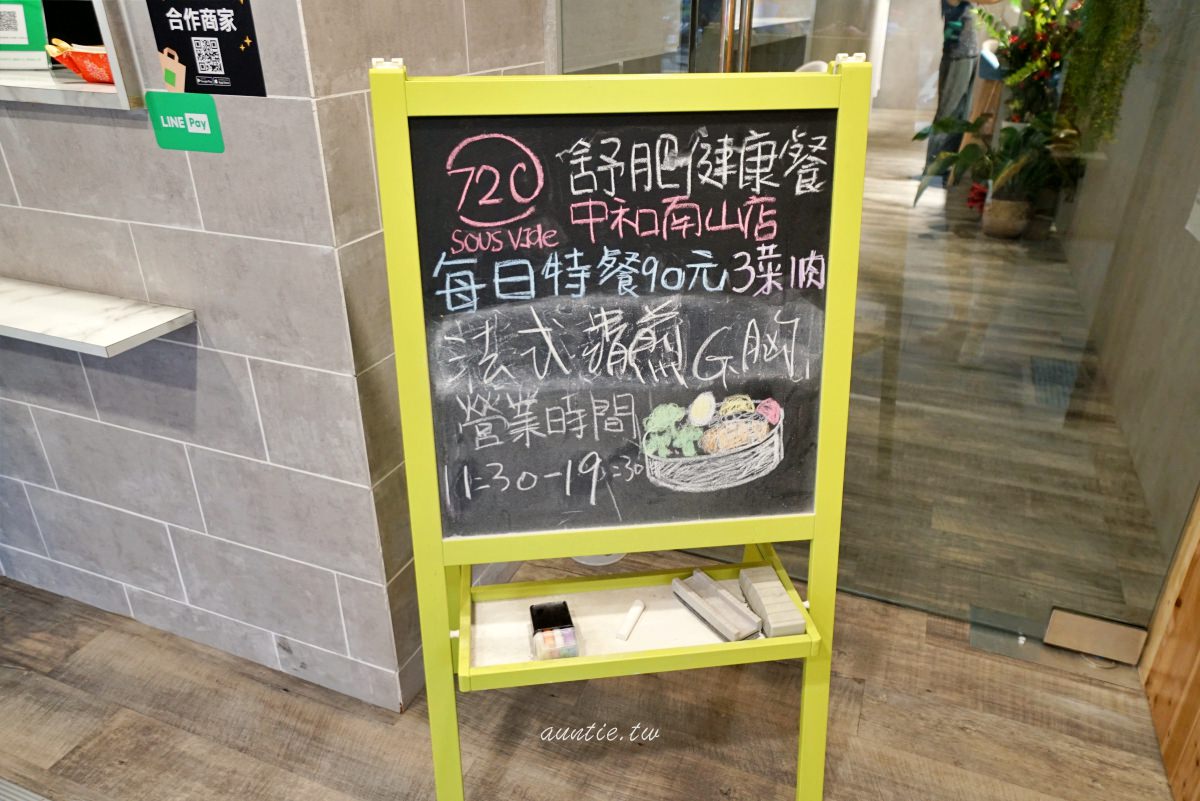 合作商家
LINE Pay
720 舒肥健康餐
SOUS VIde 中和南山店
每日特餐90元3菜1肉
法式香煎G胸
營業時間
11:30-19:30
auntie.tw